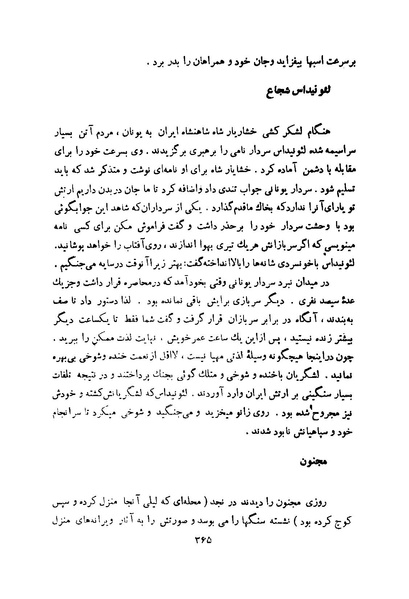 برسرعت اسبها بیفزاید وجان خود و همراهان را بدر برد .
لئونیداس شجاع
هنگام لشکر کشی خشایار شاه شاهنشاه ایران به یونان ، مردم آتن بسیار
سراسیمه شده لئونیداس سردار نامی را برهبری برگزیدند . وی بسرعت خود را برای
مقابله با دشمن آماده کرد . خشایار شاه برای او نامه‌ای نوشت و متذکر شد که باید
تسلیم شود . سردار یونانی جواب تندی داد واضافه کرد تا ما جان دربدن داریم ارتش
تو یارای آنرا نداردکه بخاك ماقدم‌گذارد . یکی از سرداران‌که شاهد این جوابگوئی
بود با وحشت سردار خود را برحذر داشت و گفت فراموش مکن برای کسی نامه
مینویسی که اگرسربازانش هریك تیری بهوا اندازند ، روی‌آفتاب را خواهد پوشانید.
لئونیداس باخونسردی شانه‌ها را بالاانداخته‌گفت: بهتر زیرا آنوقت درسایه می‌جنگیم .
در میدان نبرد سردار یونانی وقتی بخودآمد که درمحاصره قرار داشت وجزیك
عدهٔ سیصد نفری . دیگر سربازی برایش باقی نمانده بود . لذا دستور داد تا صف
به‌بندند ، آنگاه در برابر سربازان قرار گرفت و گفت شما فقط تا یکساعت دیگر
بیشتر زنده نیستید ، پس ازاین یك ساعت عمرخویش ، نهایت لذت ممکن را ببرید .
چون دراینجا هیچگونه وسیلهٔ لذتی مهیا نیست ، لااقل ازنعمت خنده وشوخی بی‌بهره
نمانید . لشگریان باخنده و شوخی و متلك گوئی بجنك پرداختند و در نتیجه تلفات
بسیار سنگینی بر ارتش ایران وارد آوردند . لئونیداس‌که لشگریانش‌کشته و خودش
نیز مجروح‌شده بود . روی زانو میخزید و می‌جنگید و شوخی میکرد تا سرانجام
خود و سپاهیانش نابود شدند .
مجنون
روزی مجنون را دیدند در نجد ( محله‌ای که لیلی آنجا منزل کرده و سپس
کوچ کرده بود ) نشسته سنگها را می بوسد و صورتش را به آثار ویرانه‌های منزل
۳۶۵